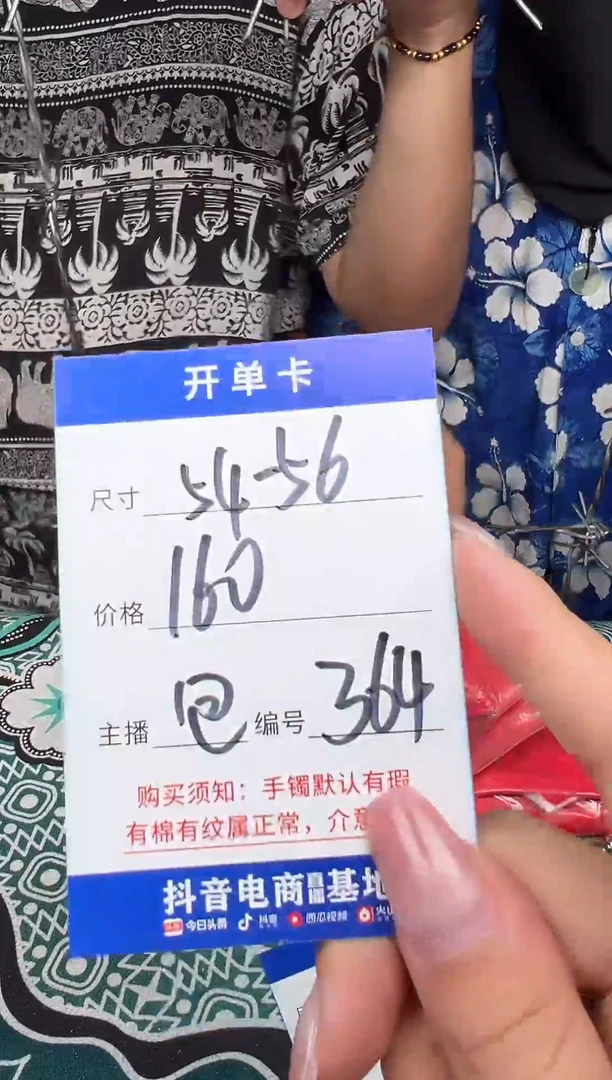 开单卡
尺寸 54-56
价格 160
主播 包 编号 364
购买须知：手镯默认有瑕
有棉有纹属正常，介意
抖音电商直播基地
今日头条 抖音 西瓜视频 火山